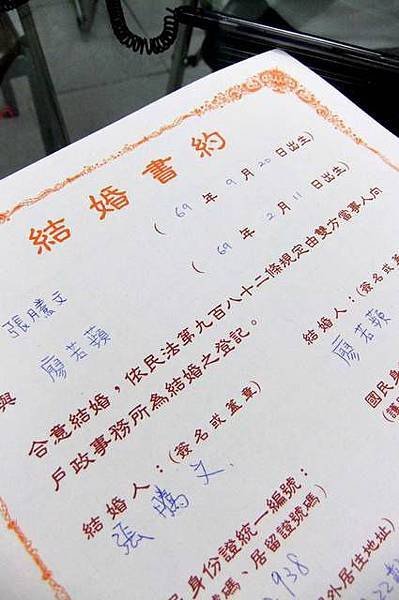 結婚書約
張騰文
(69年9月20日出生)
與
廖若蘋
(69年2月11日出生)
合意結婚，依民法第九百八十二條規定由雙方當事人向
戶政事務所為結婚之登記。
結婚人：(簽名或蓋章)
張騰文
結婚人：(簽名或蓋
廖若蘋
民身份證統一編號：
號碼、居留證號碼)
938
國民身
(護
外居住地址)